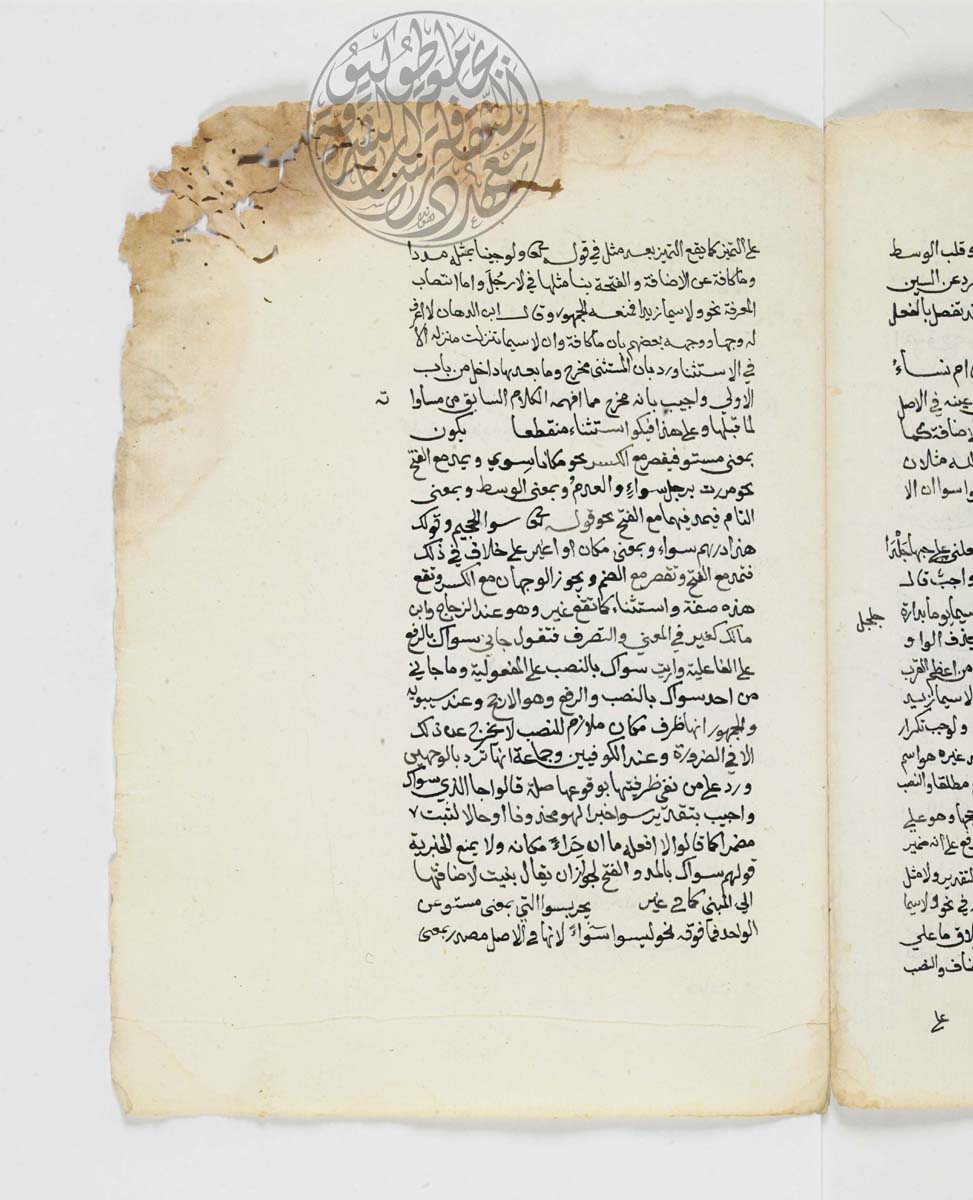 و قلب الوسط
رد عن السين
ـد تفصل بالفعل
ام نساءُ
عينه في الاصل
لاضافة كما
مثلان
واسواان الا
واجبُ قال
سيما يوما بدارة
جلجل
يحذف الواو
من اعظم القرب
لاسيما زيد
ولوجب تكرار
غيره هو اسم
مطلقا والنصب
وهو علي
رفع علي انه خبر
التقدير ولا مثل
في نحو ولاسيما
لاق ما علي
ضاف والنصب
علي
علي التميز كما يقع التميز بعد مثل في قوله تعالى ولو جينا بمثله مددا
وما كافة عن الاضافة والفتحة بنا مثلها في لا رجُلَ واما انتصاب
المعرفة نحو ولاسيما زيدا فمنعه الجمهور وقال ابن الدهان لا اعرف
له وجها ووجهه بعضهم بان ما كافة وان لاسيما تنزلت منزله الا
في الاستثنا ورد بان المستثنى مخرج وما بعدها داخل من باب
الاولي واجيب بانه مخرج مما افهمه الكلام السابق من مساوا
تة
لما قبلها وعلي هذا فيكو استثناء منقطعا يكون
بمعنى مستو فيقصر مع الكسر نحو مكانا سِوي ويمد مع الفتح
نحو مررت برجل سواءٍ والعدمُ وبمعنى الوسط وبمعنى
التام فيمد فيهما مع الفتح نحو قوله تعالى سوا الجحيم وقولك
هذا درهم سواء وبمعنى مكان او اغير على خلاف في ذلك
فتمد مع الفتح وتقصر مع الضم ويجوز الوجهان مع الكسر وتقع
هذه صفة واستثناء كما تقع غير وهو عند الزجاج وابن
مالك كغير في المعني والتصرف فتقول جاني سواك بالرفع
على الفاعلية وارايت سواك بالنصب على المفعولية وما جاني
من احد سواك بالنصب والرفع وهو الارجح وعند سيبويه
والجمهور انها ظرف مكان ملازم للنصب لا يخرج عن ذلك
الا في الضرورة وعند الكوفيين وجماعة انها ترد بالوجهين
ورد على من نفى ظرفيتها بوقوعها صلة قالوا جا الذي سواك
واجيب بتقدير سوا خبرا لهو محذوفا او حالا لثبت ٧
مضمرا كما قالوا لا افعله ما ان حِراءً مكانه ولا يمنع الخبرية
قولهم سواك بالمد والفتح لجواز ان يقال بنيت لاضافتها
الى المبنى كما في غير يخبر بسوا التي بمعنى مستو عن
الواحد فما فوقه نحو ليسوا سَوَاءً لانها في الاصل مصدر بمعنى